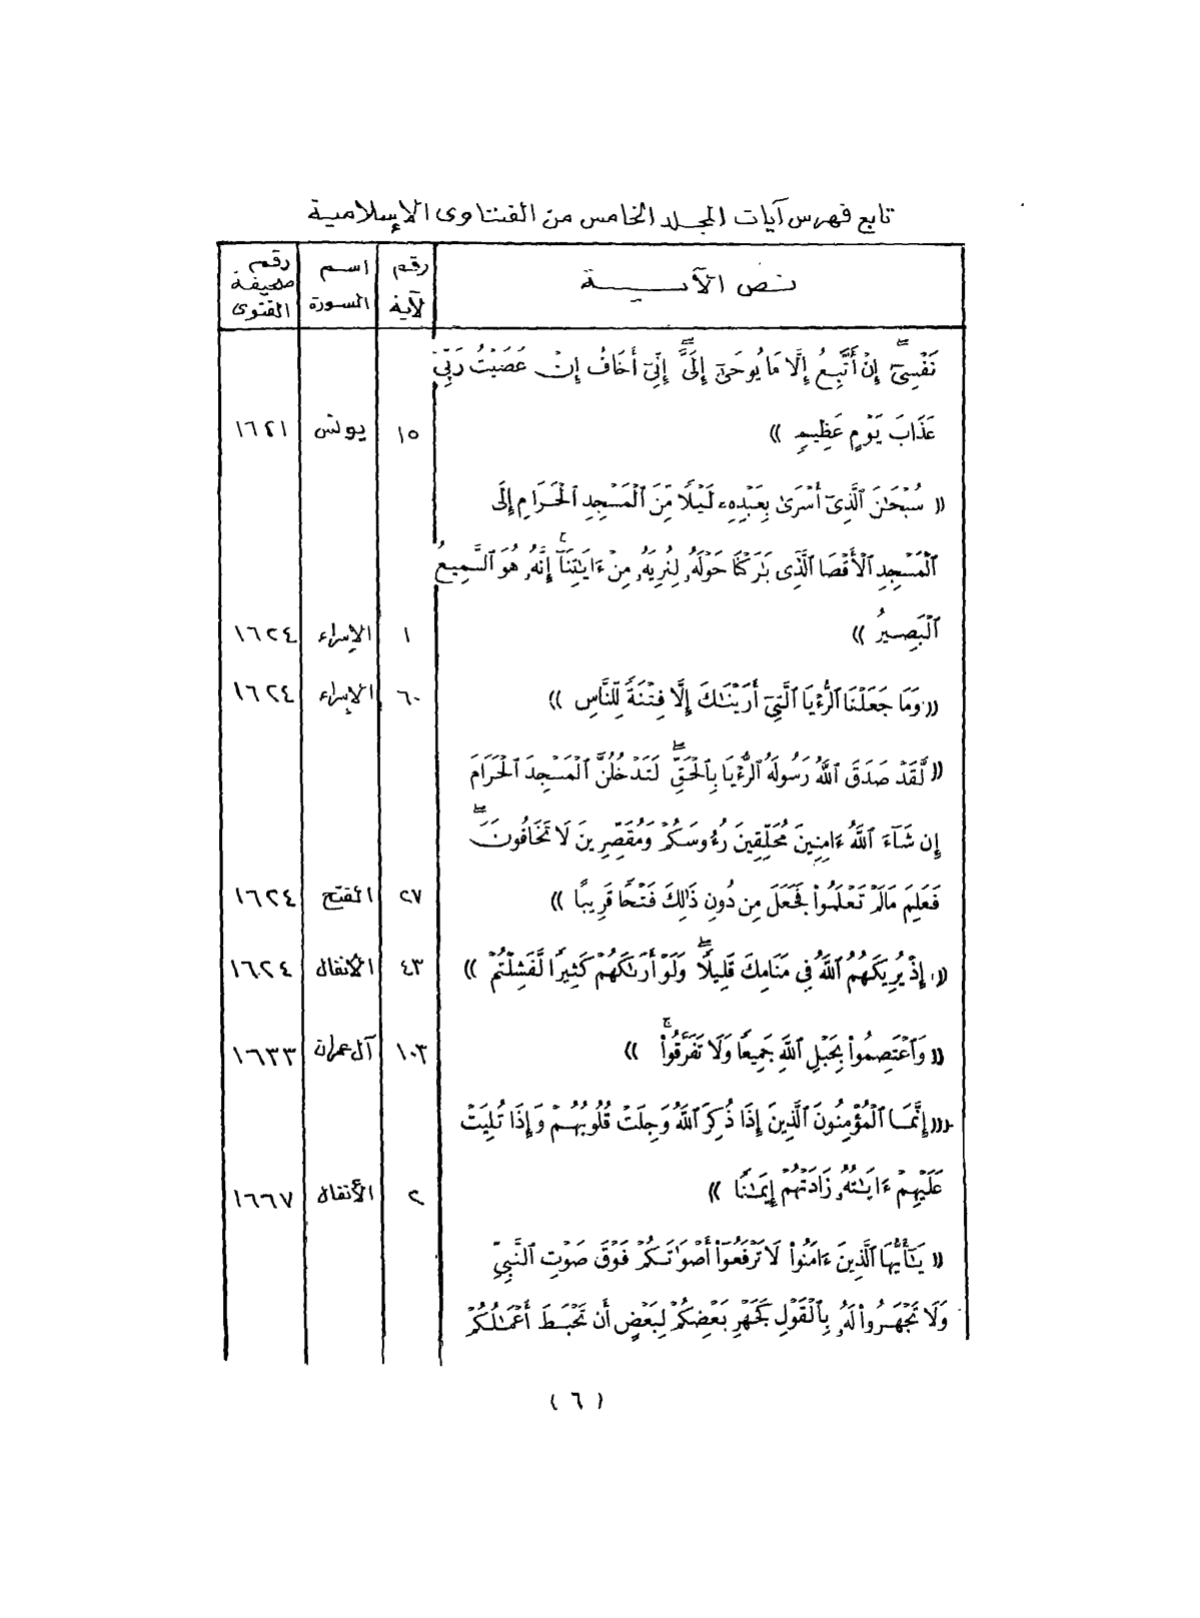 تابع فهرس آيات المجلد الخامس من الفتاوى الإسلامية
نص الآية | رقم الآية | اسم السورة | رقم صحيفة الفتوى
نَفْسِىٓ ۖ إِنْ أَتَّبِعُ إِلَّا مَا يُوحَىٰٓ إِلَىَّ ۖ إِنِّىٓ أَخَافُ إِنْ عَصَيْتُ رَبِّى
عَذَابَ يَوْمٍ عَظِيمٍ )) | ١٥ | يونس | ١٦٢١
(( سُبْحَٰنَ ٱلَّذِىٓ أَسْرَىٰ بِعَبْدِهِۦ لَيْلًا مِّنَ ٱلْمَسْجِدِ ٱلْحَرَامِ إِلَى
ٱلْمَسْجِدِ ٱلْأَقْصَا ٱلَّذِى بَٰرَكْنَا حَوْلَهُۥ لِنُرِيَهُۥ مِنْ ءَايَٰتِنَآ ۚ إِنَّهُۥ هُوَ ٱلسَّمِيعُ
ٱلْبَصِيرُ )) | ١ | الإسراء | ١٦٢٤
(( وَمَا جَعَلْنَا ٱلرُّءْيَا ٱلَّتِىٓ أَرَيْنَٰكَ إِلَّا فِتْنَةً لِّلنَّاسِ )) | ٦٠ | الإسراء | ١٦٢٤
(( لَّقَدْ صَدَقَ ٱللَّهُ رَسُولَهُ ٱلرُّءْيَا بِٱلْحَقِّ ۖ لَتَدْخُلُنَّ ٱلْمَسْجِدَ ٱلْحَرَامَ
إِن شَآءَ ٱللَّهُ ءَامِنِينَ مُحَلِّقِينَ رُءُوسَكُمْ وَمُقَصِّرِينَ لَا تَخَافُونَ ۖ
فَعَلِمَ مَا لَمْ تَعْلَمُوا۟ فَجَعَلَ مِن دُونِ ذَٰلِكَ فَتْحًا قَرِيبًا )) | ٢٧ | الفتح | ١٦٢٤
(( إِذْ يُرِيكَهُمُ ٱللَّهُ فِى مَنَامِكَ قَلِيلًا ۖ وَلَوْ أَرَىٰكَهُمْ كَثِيرًا لَّفَشِلْتُمْ )) | ٤٣ | الأنفال | ١٦٢٤
(( وَٱعْتَصِمُوا۟ بِحَبْلِ ٱللَّهِ جَمِيعًا وَلَا تَفَرَّقُوا۟ ۚ )) | ١٠٣ | آل عمران | ١٦٣٣
(( إِنَّمَا ٱلْمُؤْمِنُونَ ٱلَّذِينَ إِذَا ذُكِرَ ٱللَّهُ وَجِلَتْ قُلُوبُهُمْ وَإِذَا تُلِيَتْ
عَلَيْهِمْ ءَايَٰتُهُۥ زَادَتْهُمْ إِيمَٰنًا )) | ٢ | الأنفال | ١٦٦٧
(( يَٰٓأَيُّهَا ٱلَّذِينَ ءَامَنُوا۟ لَا تَرْفَعُوٓا۟ أَصْوَٰتَكُمْ فَوْقَ صَوْتِ ٱلنَّبِىِّ
وَلَا تَجْهَرُوا۟ لَهُۥ بِٱلْقَوْلِ كَجَهْرِ بَعْضِكُمْ لِبَعْضٍ أَن تَحْبَطَ أَعْمَٰلُكُمْ
( ٦ )